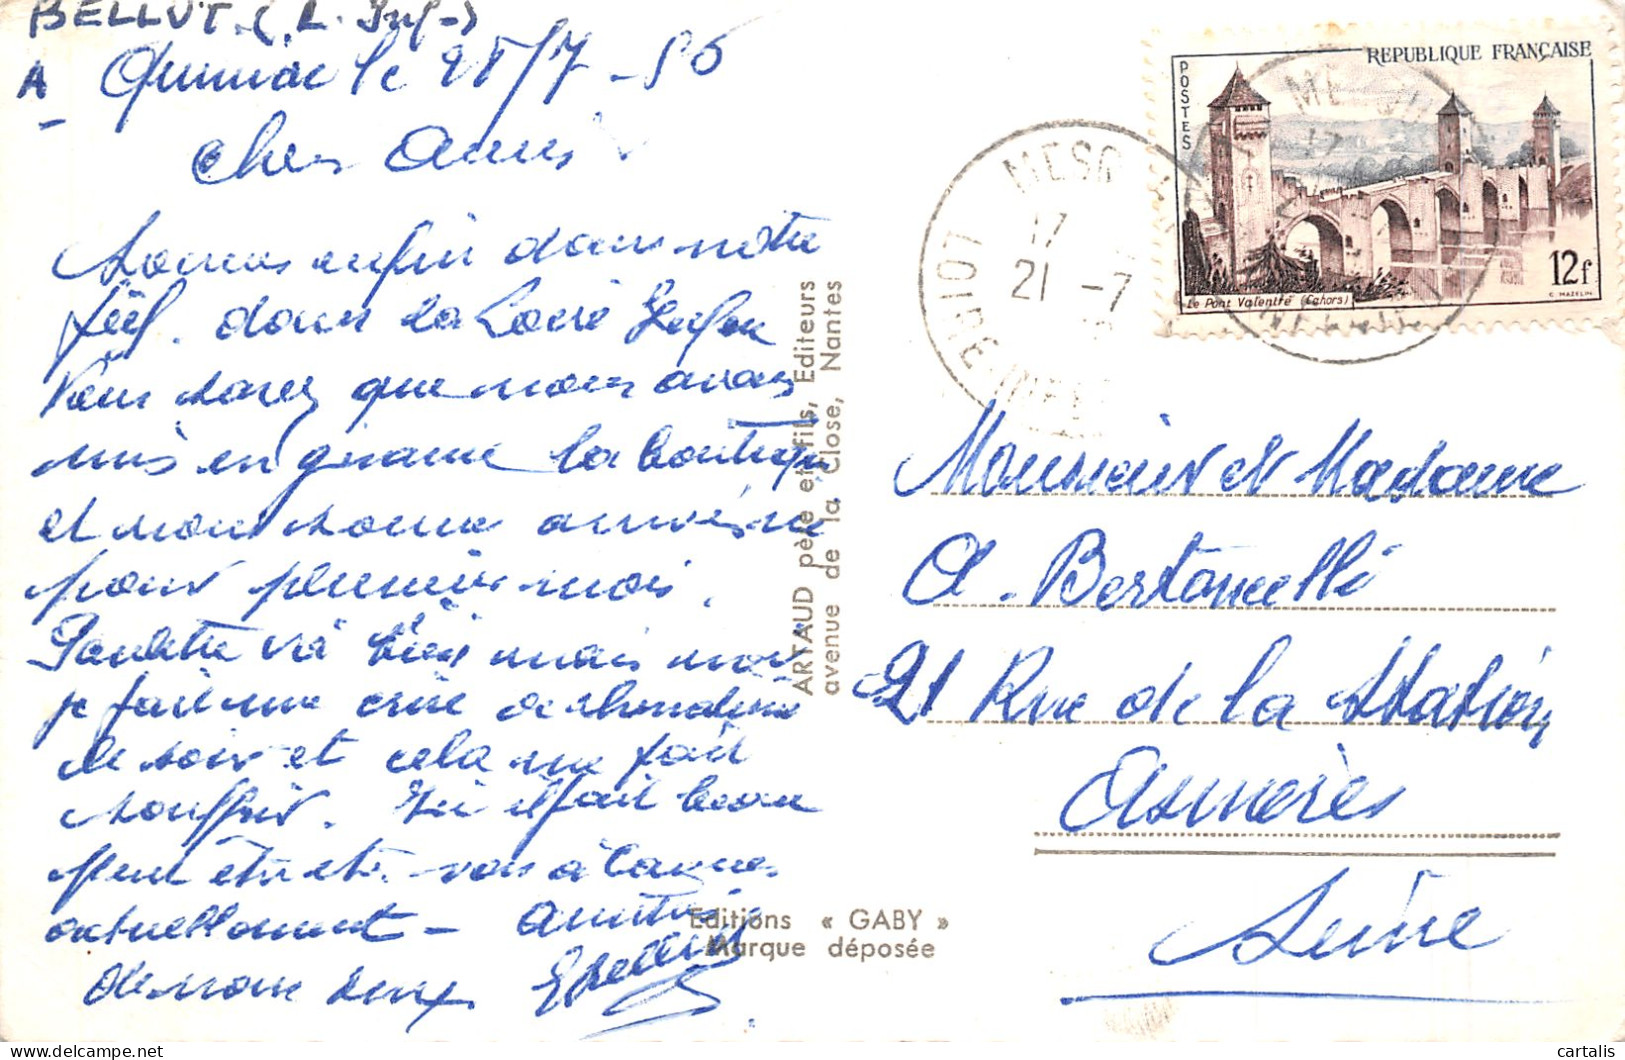 BELLUT. (L. Inf-)
A Quimiac le 28/7 - 56
Chers Amis
Sommes enfin dans notre
dans la Loire Infer
Vous savez que nous avons
mis en gérance la boutique
et nous sommes arrivés ici
pour plusieurs mois.
Paulette va bien mais moi
je fait une crise de rhumatisme
ce soir et cela me fait
souffrir. Ici il fait beau
Peut être êtes-vous à Cannes
actuellement - Amitiés
de nous deux
ARTAUD père et fils, Editeurs
avenue de la Close, Nantes
Editions « GABY »
Marque déposée
REPUBLIQUE FRANÇAISE
POSTES
Le Pont Valentré (Cahors)
12f
C. MAZELIN
MESQ
17
21 -7
LOIRE-INFRE
Monsieur et Madame
A. Bertoncelli
21 Rue de la Station
Asnières
Seine
delcampe.net
cartalis